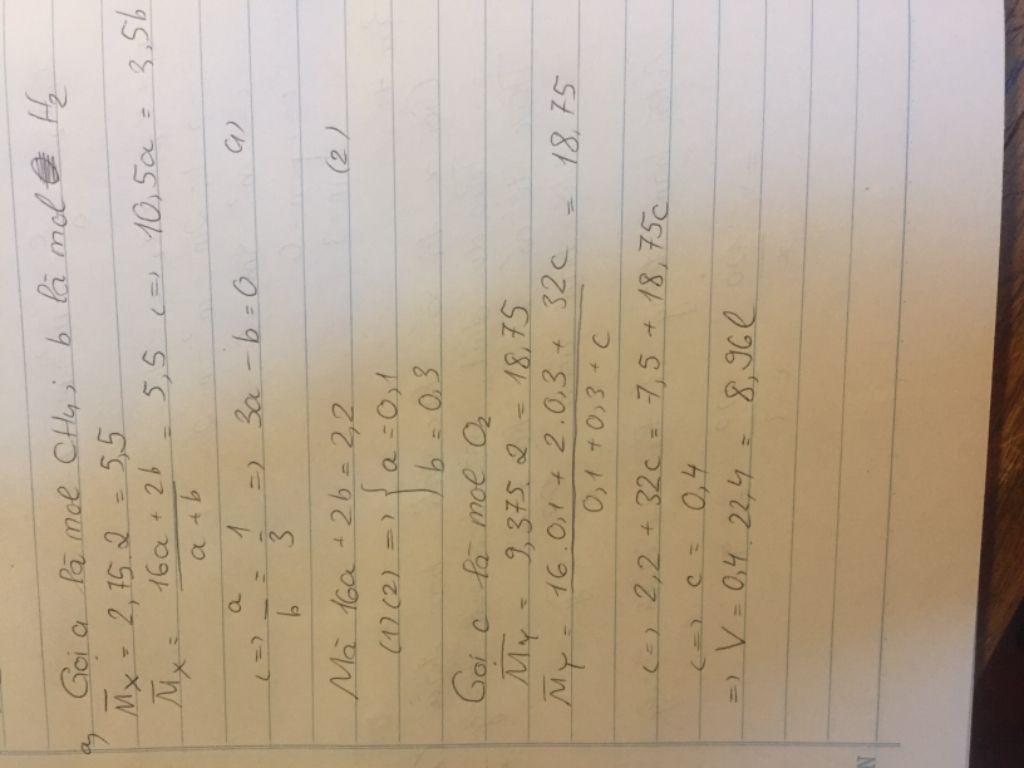 a, Gọi a là mol CH4, b là mol H2
M̅X = 2,75.2 = 5,5
M̅X = (16a + 2b)/(a + b) = 5,5 (=) 10,5a = 3,5b
(=) a/b = 1/3 => 3a - b = 0 (1)
Mà 16a + 2b = 2,2 (2)
(1)(2) => { a = 0,1
b = 0,3
Gọi c là mol O2
M̅Y = 9,375.2 = 18,75
M̅Y = (16.0,1 + 2.0,3 + 32c)/(0,1 + 0,3 + c) = 18,75
(=) 2,2 + 32c = 7,5 + 18,75c
(=) c = 0,4
=> V = 0,4.22,4 = 8,96l
N